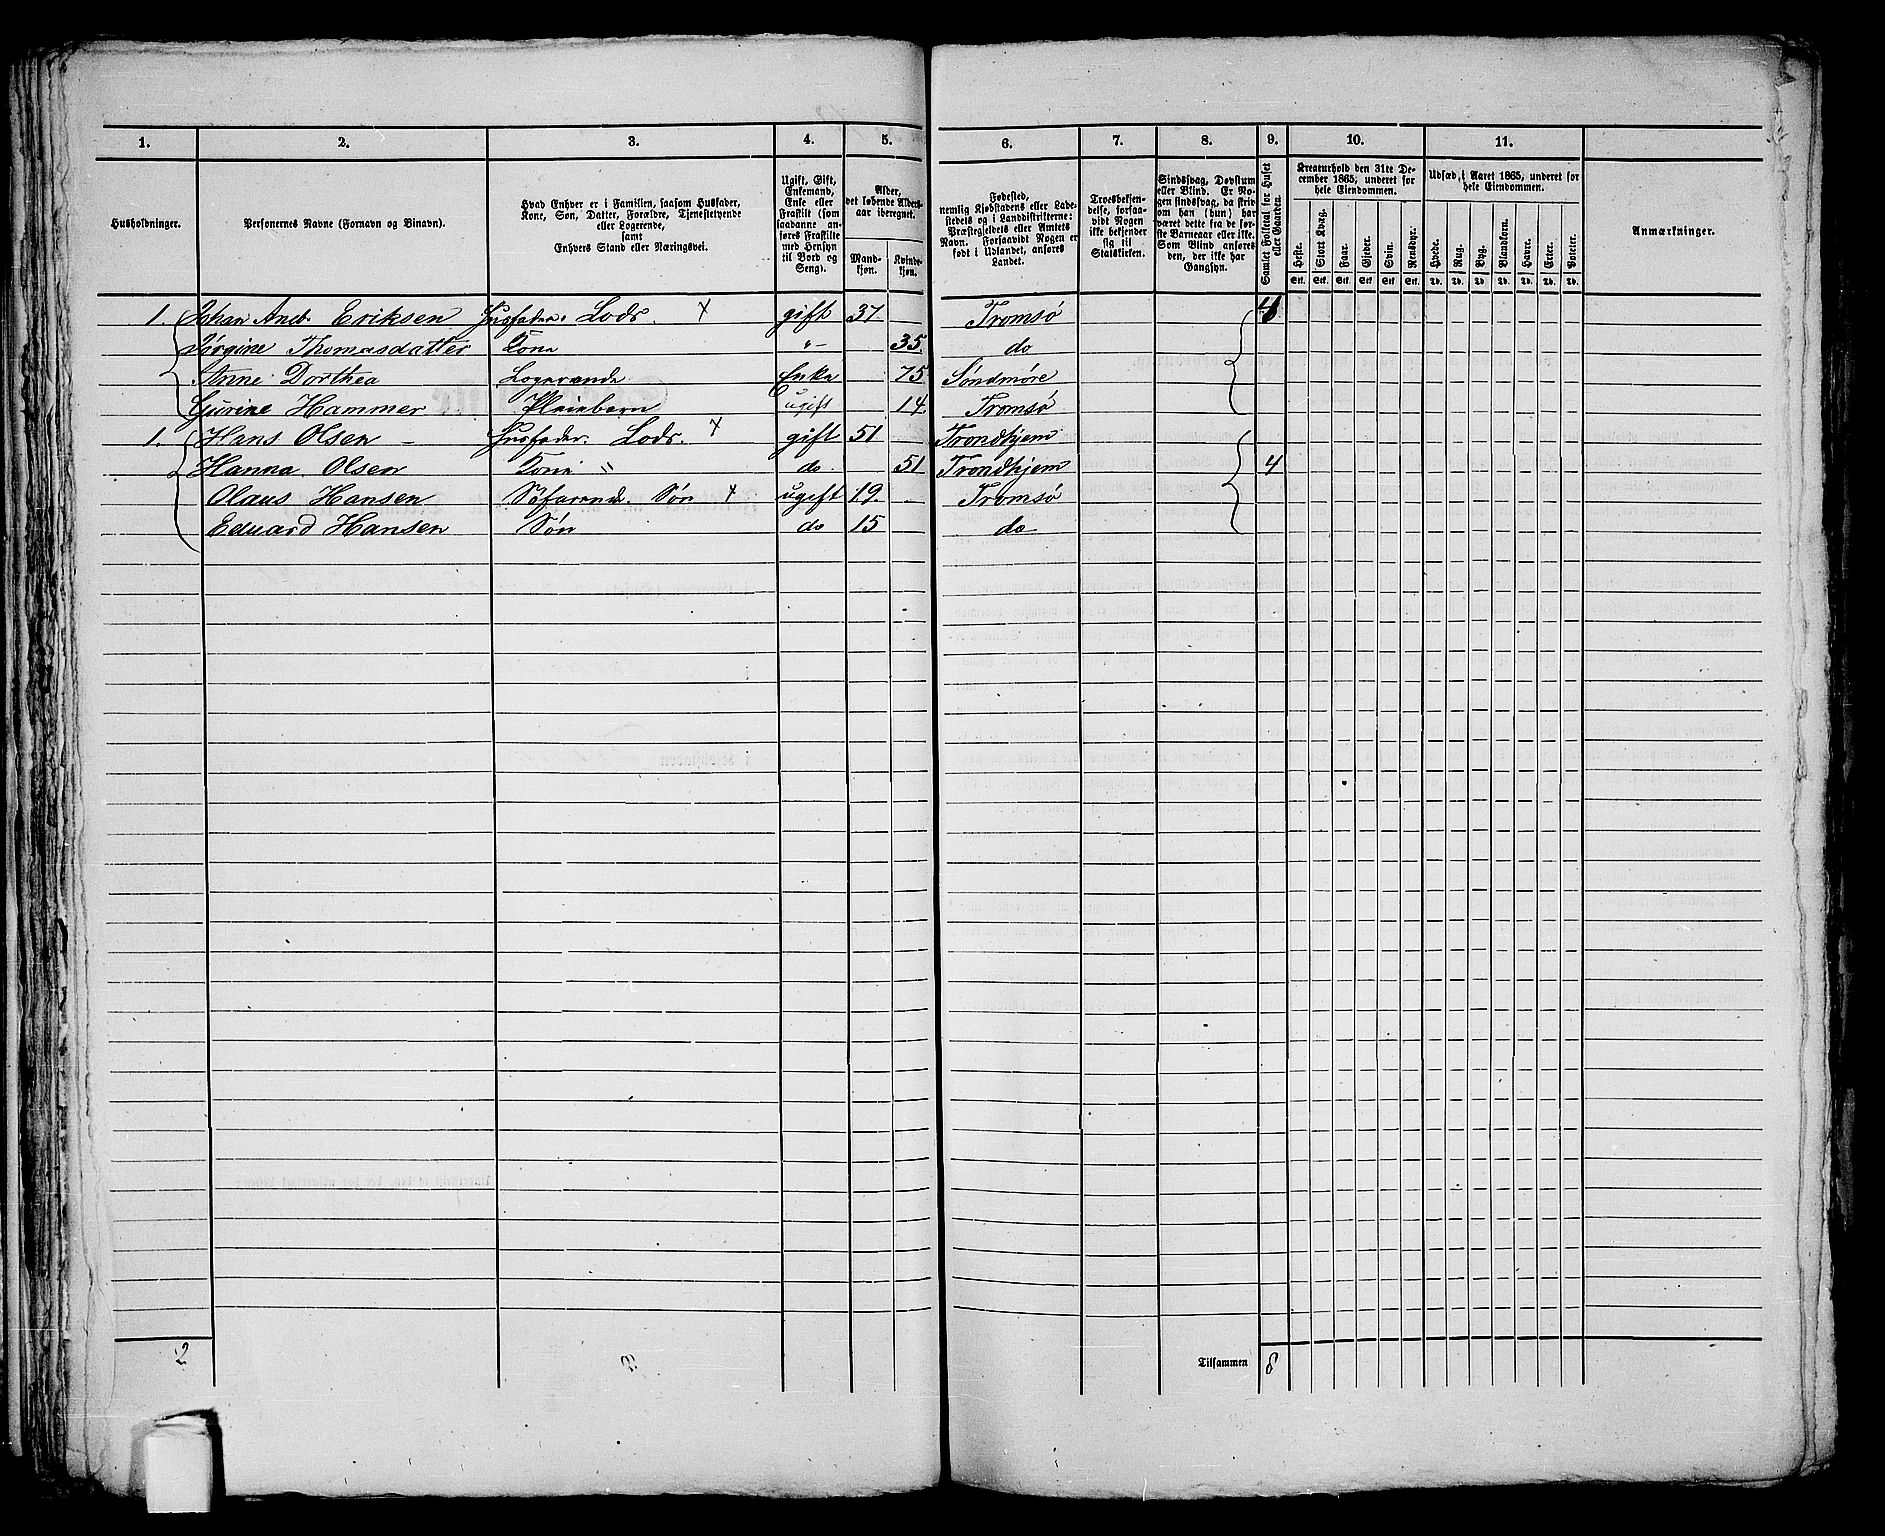 1. 2. 3. 4. 5. 6. 7. 8. 9. 10. 11.
Husholdninger.
Personernes Navne (Fornavn og Binavn).
Hvad Enhver er i Familien, saasom Husfader,
Kone, Søn, Datter, Forældre, Tjenestetyende
eller Logerende,
samt
Enhvers Stand eller Næringsvei.
Ugift, Gift,
Enkemand,
Enke eller
Fraskilt (som
saadanne an-
føres Fraskilte
med Hensyn
til Bord og
Seng).
Alder,
det løbende Alders-
aar iberegnet.
Mand-
kjøn.
Kvinde-
kjøn.
Fødested,
nemlig Kjøbstadens eller Lade-
stedets og i Landdistrikterne:
Præstegjeldets eller Amtets
Navn. Forsaavidt Nogen er
født i Udlandet, anføres
Landet.
Troesbekjen-
delse, forsaa-
vidt Nogen
ikke bekjender
sig til
Statskirken.
Sindssvag, Døvstum
eller Blind. Er No-
gen sindssvag, da skriv
om han (hun) har
været dette fra de før-
ste Barneaar eller ikke.
Som Blind anføres
den, der ikke har
Gangsyn.
Samlet Folketal for Huset
eller Gaarden.
Kreaturhold den 31te De-
cember 1865, underet for
hele Eiendommen.
Heste. Stort Kvæg. Faar. Gjeder. Svin. Rensdyr.
Stk. Stk. Stk. Stk. Stk. Stk.
Udsæd i Aaret 1865, underet for
hele Eiendommen.
Hvede. Rug. Byg. Blandkorn. Havre. Erter. Poteter.
Td. Td. Td. Td. Td. Td. Td.
Anmærkninger.
1. Johan Eriksen Husfader. Lods. gift 37 Tromsø 4
Jørgine Thomasdatter Kone " 35. do
Anne Dorthea Logerende Enke 75 Søndmøre
Gurine Hammer Pleiebarn ugift 14 Tromsø
1. Hans Olsen Husfader. Lods. gift 51 Trondhjem
Hanna Olsen Kone " do 51 Trondhjem 4
Olaus Hansen Søfarende. Søn ugift 19 Tromsø
Eduard Hansen Søn do 15 do
2 2. Tilsammen 8